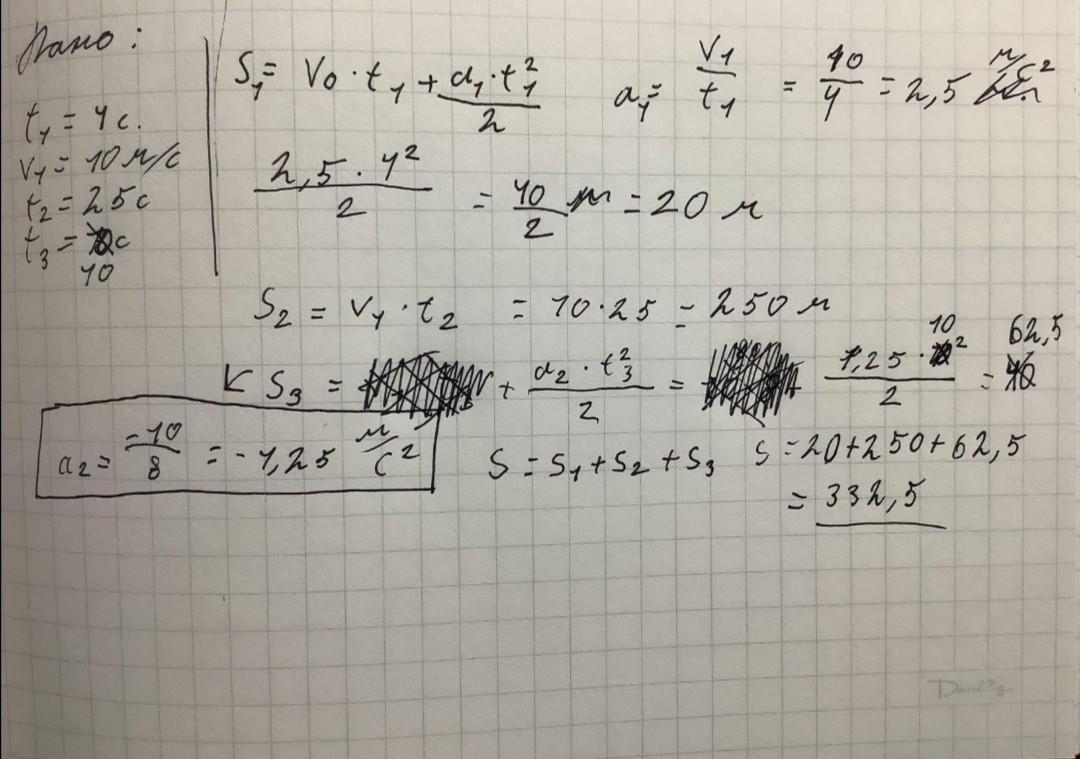 Дано:
t₁ = 4 с.
V₁ = 10 м/с
t₂ = 25 с
t₃ = с
10
S₁ = V₀ · t₁ + a₁ · t₁² / 2
a₁ = V₁ / t₁ = 10 / 4 = 2,5 м/с²
2,5 · 4² / 2 = 40 / 2 м = 20 м
S₂ = V₁ · t₂ = 10 · 25 = 250 м
S₃ = + a₂ · t₃² / 2 = 1,25 · 10² / 2 = 62,5
a₂ = -10 / 8 = -1,25 м/с²
S = S₁ + S₂ + S₃
S = 20 + 250 + 62,5
= 332,5